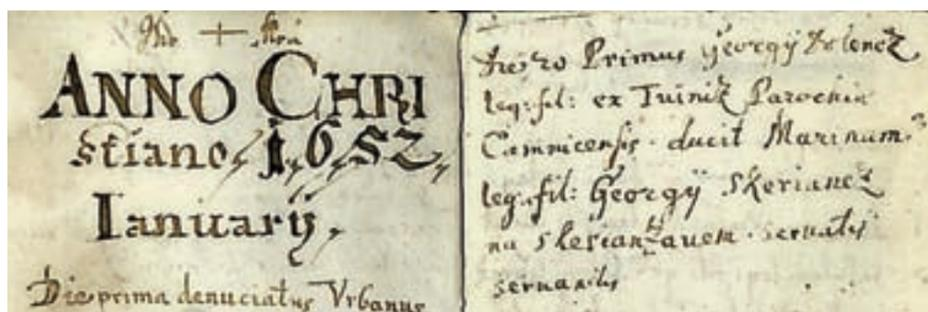 ANNO CHRI
stiano, 1652,
Ianuarij,
Die prima denuciatus Vrbanus
Primus Georgij Zelenez
leg: fil: ex Tuiniz Parochia
Camnicensis. ducit Marinam.
leg: fil: Georgij Skerianez
na servatis
servandis